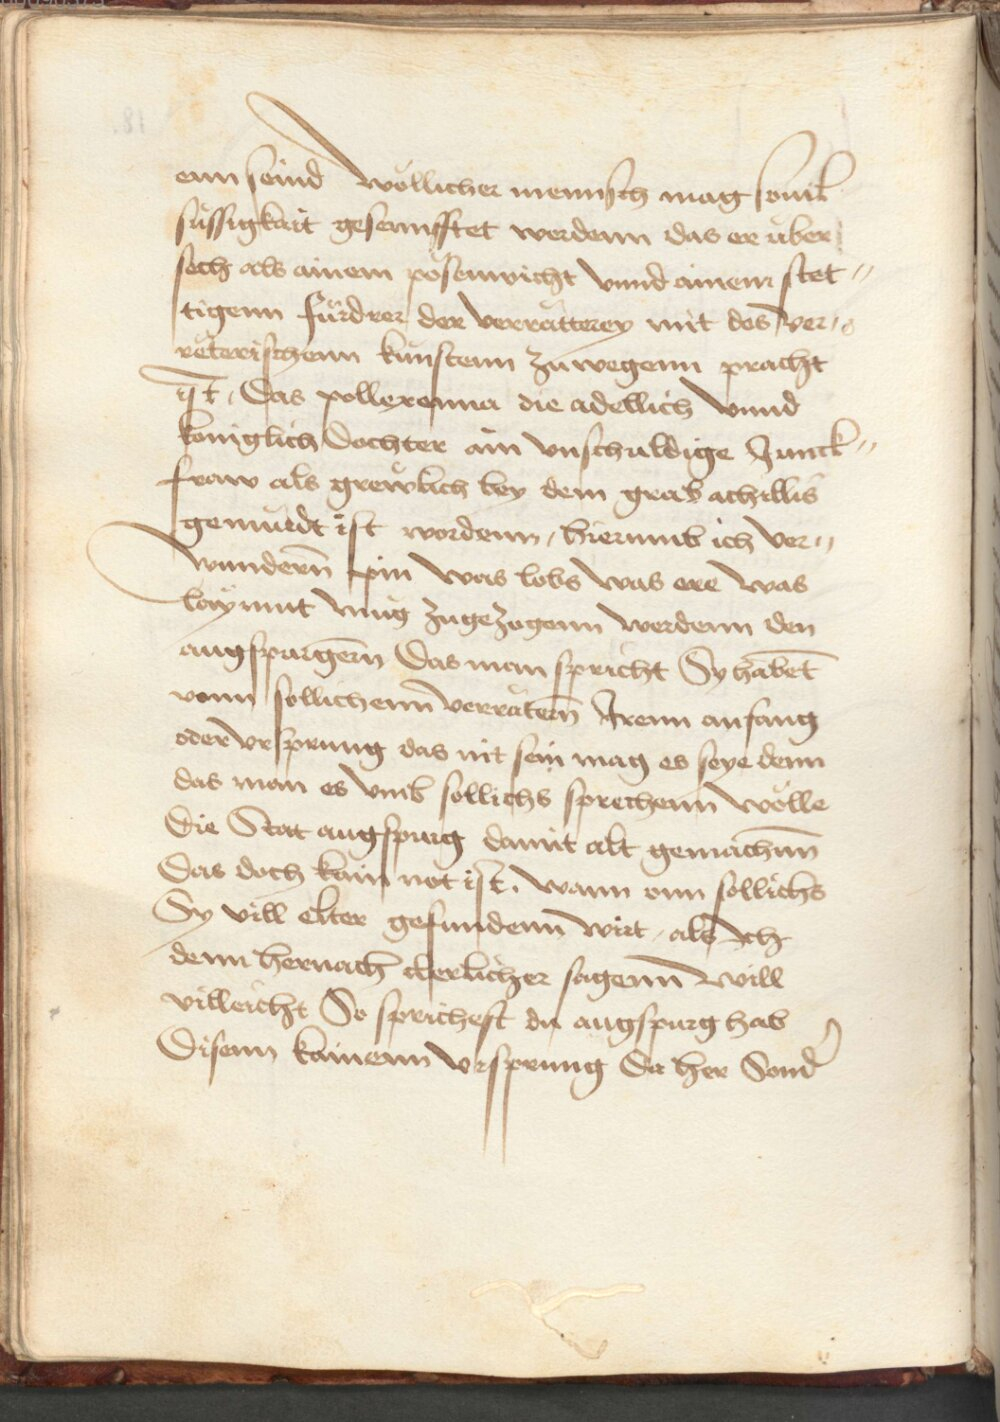 enn seind wöllicher mennsch mag souil
süssigkait gesennfftet werdenn das er über
sech als ainem pösenwicht vnnd ainem stet-
tigenn fürdrer der verrätterey mit des ver-
reterischenn künstenn zuwegenn pracht
ist, Das pollexenna die adellich vnnd
königlich dochter ain vnschuldige Junck-
fraw als grewlich bey dem grab achillis
gemürdt ist wordenn, hierumb ich ver-
wundern̄ pin was lobs was ere was
müg zugezogenn werdenn den
augspurgern̄ Das man spricht Sy habēt
vonn sollichenn̄ verrätern̄ Irenn anfang
oder vrsprung das nit sein mag es seye denn
das man es vmb sollichs sprechenn wölle
die Stat augspurg damit alt gemachnn̄
Das doch kain not ist. wann onn sollichs
Sy vill elter gefundenn̄ wirt, als Ich
denn hernach clerlicher sagenn̄ will
villeicht So sprichest du augspurg hab
Disenn kainenn vrsprung Da her Sond